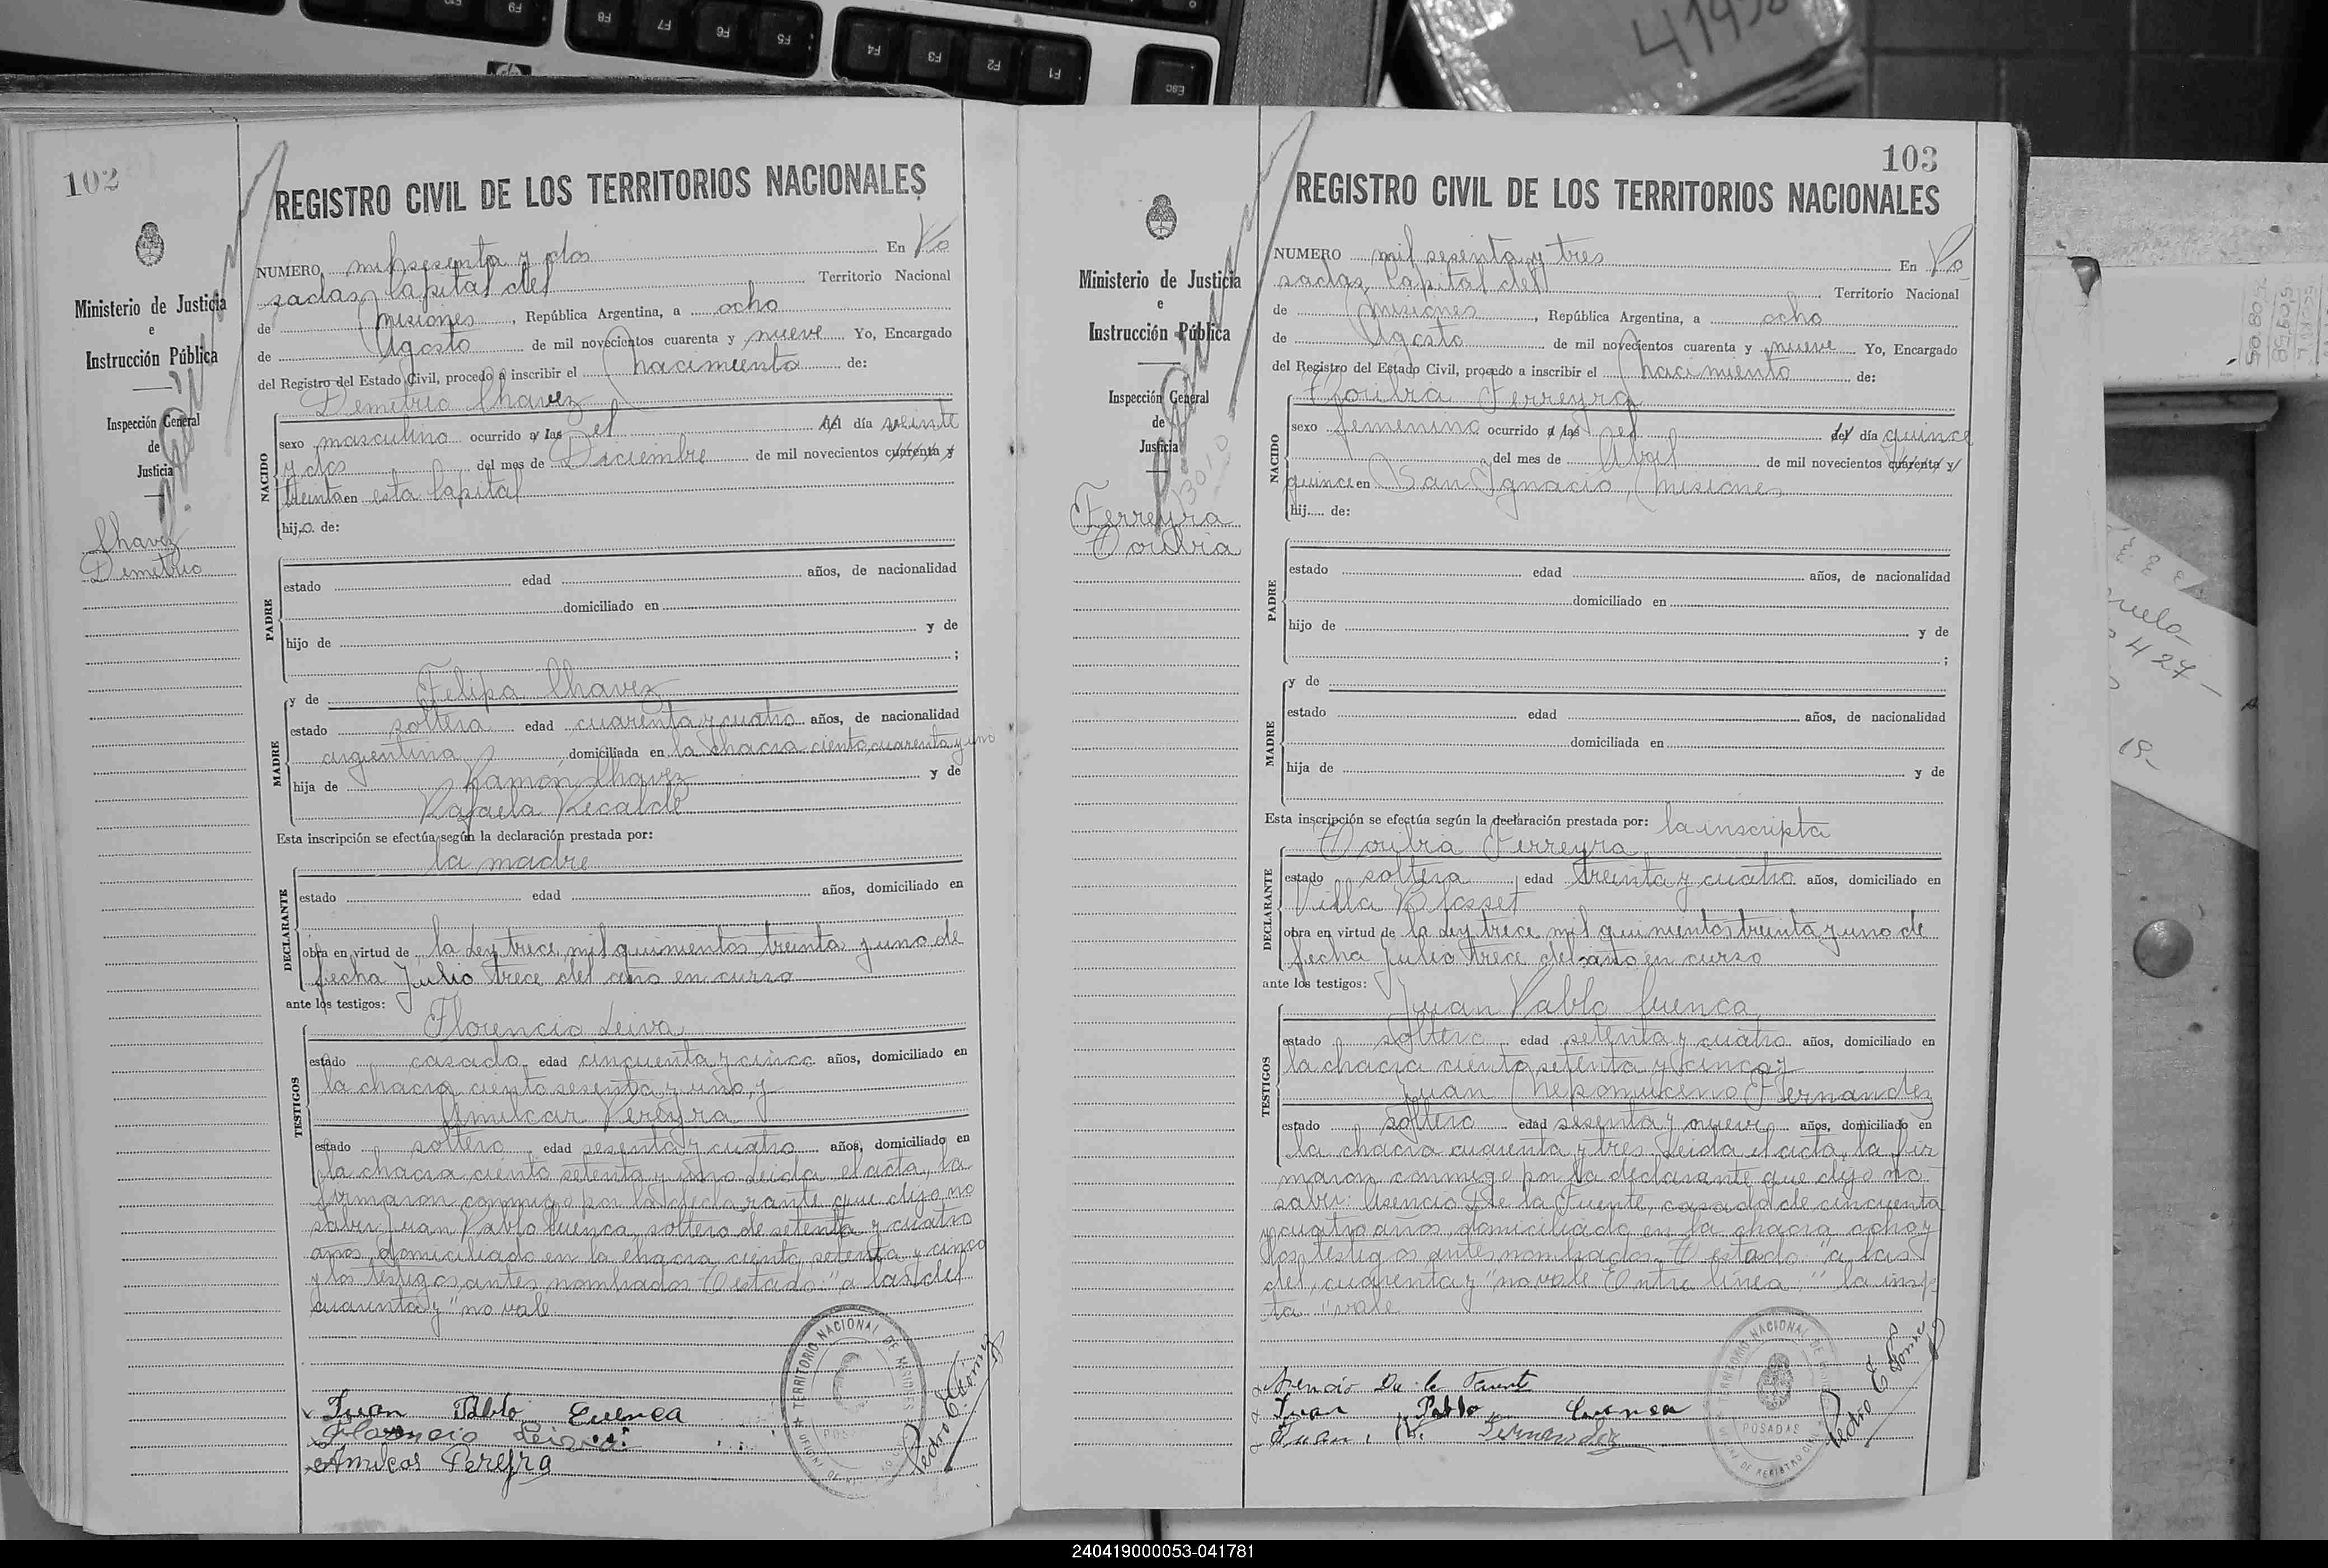 102
REGISTRO CIVIL DE LOS TERRITORIOS NACIONALES
Ministerio de Justicia
e
Instrucción Pública
Inspección General
de
Justicia
Chavez
Demetrio
NUMERO mil sesenta y dos En Po
sadas Capital del Territorio Nacional
de Misiones, República Argentina, a ocho
de Agosto de mil novecientos cuarenta y nueve Yo, Encargado
del Registro del Estado Civil, procedo a inscribir el nacimiento de:
Demetrio Chavez
NACIDO
sexo masculino ocurrido a las el del día veinte
y dos del mes de Diciembre de mil novecientos cuarenta y
treinta en esta Capital
hijo de:
PADRE
estado edad años, de nacionalidad
domiciliado en
hijo de y de
;
MADRE
y de Felipa Chavez
estado soltera edad cuarenta y cuatro años, de nacionalidad
argentina, domiciliada en la chacra ciento cuarenta y uno
hija de Ramon Chavez y de
Rafaela Recalde
Esta inscripción se efectúa según la declaración prestada por:
la madre
DECLARANTE
estado edad años, domiciliado en
obra en virtud de la Ley trece mil quinientos treinta y uno de
fecha Julio trece del año en curso
ante los testigos:
TESTIGOS
Florencio Leiva
estado casado edad cincuenta y cinco años, domiciliado en
la chacra ciento sesenta y uno, y
Amilcar Pereyra
estado soltero edad sesenta y cuatro años, domiciliado en
la chacra ciento setenta y uno Leida el acta, la
firmaron conmigo por la declarante que dijo no
saber: Juan Pablo Cuenca, soltero de setenta y cuatro
años, domiciliado en la chacra ciento setenta y cinco
y los testigos antes nombrados Testado: "a las del
cuarenta y" no vale
Juan Pablo Cuenca
Florencio Leiva
Amilcar Pereyra
TERRITORIO NACIONAL DE MISIONES
Pedro E Gomez
103
REGISTRO CIVIL DE LOS TERRITORIOS NACIONALES
Ministerio de Justicia
e
Instrucción Pública
Inspección General
de
Justicia
13010
Ferreyra
Toribia
NUMERO mil sesenta y tres En Po
sadas Capital del Territorio Nacional
de Misiones, República Argentina, a ocho
de Agosto de mil novecientos cuarenta y nueve Yo, Encargado
del Registro del Estado Civil, procedo a inscribir el nacimiento de:
Toribia Ferreyra
NACIDO
sexo femenino ocurrido a las el del día quince
del mes de Abril de mil novecientos cuarenta y
quince en San Ignacio, Misiones
hij de:
PADRE
estado edad años, de nacionalidad
domiciliado en
hijo de y de
;
MADRE
y de
estado edad años, de nacionalidad
domiciliada en
hija de y de
Esta inscripción se efectúa según la declaración prestada por: la inscripta
DECLARANTE
Toribia Ferreyra
estado soltera edad treinta y cuatro años, domiciliado en
Villa Blosset
obra en virtud de la Ley trece mil quinientos treinta y uno de
fecha Julio trece del año en curso
ante los testigos:
TESTIGOS
Juan Pablo Cuenca
estado soltero edad setenta y cuatro años, domiciliado en
la chacra ciento setenta y cinco y
Juan Nepomuceno Fernandez
estado soltero edad sesenta y nueve años, domiciliado en
la chacra cuarenta y tres Leida el acta, la fir
maron conmigo por la declarante que dijo no
saber: Asencio De la Fuente, casado de cincuenta
y cuatro años, domiciliado en la chacra ocho y
los testigos antes nombrados. Testado: "a las
del, cuarenta y" no vale Entre linea: "la insp
ta" vale
Asencio De la Fuente
Juan Pablo Cuenca
Juan N. Fernandez
TERRITORIO NACIONAL DE MISIONES
POSADAS
Pedro E Gomez
240419000053-041781